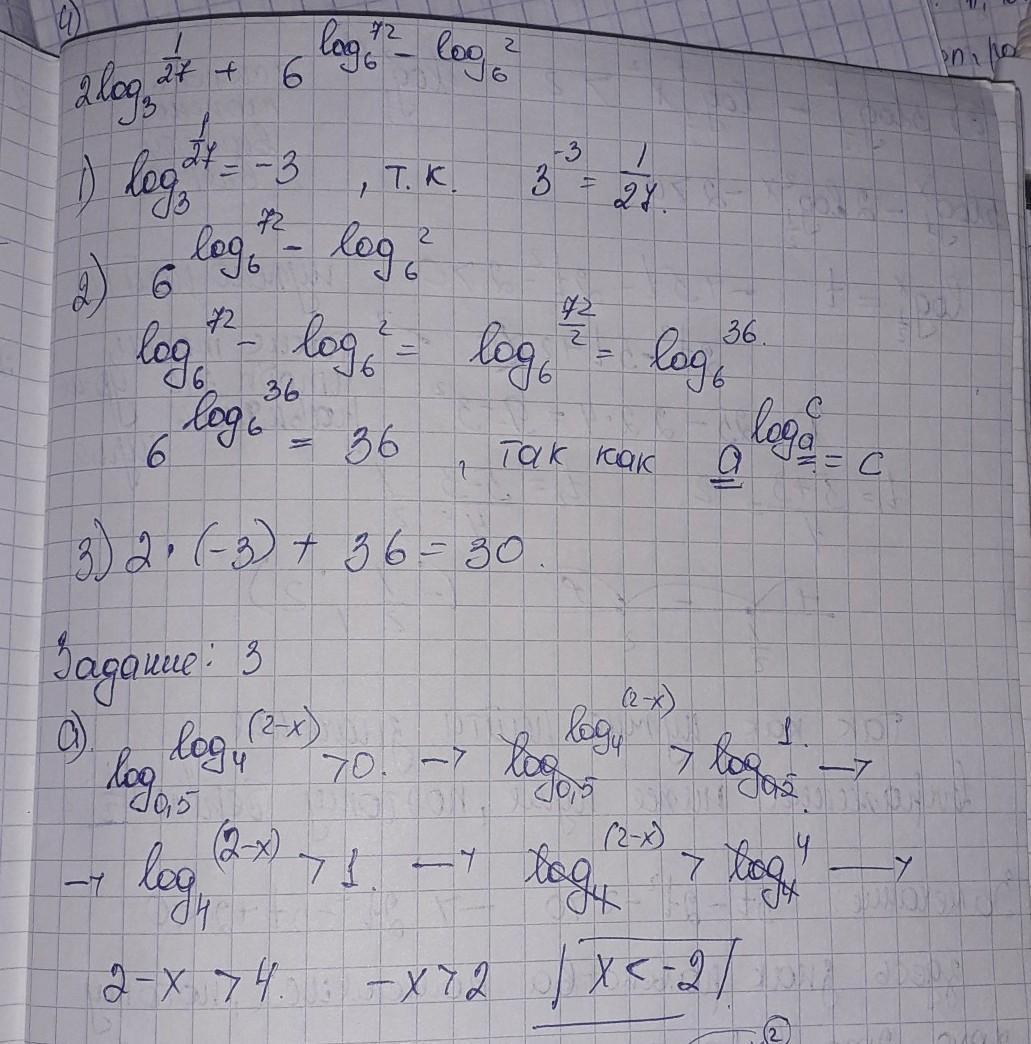 4)
2log₃^(1/27) + 6^(log₆^72 − log₆^2)
1) log₃^(1/27) = −3 , т.к. 3^(−3) = 1/27.
2) 6^(log₆^72 − log₆^2)
log₆^72 − log₆^2 = log₆^(72/2) = log₆^36.
6^(log₆^36) = 36 , так как a^(logₐ^c) = c
3) 2 · (−3) + 36 = 30.
Задание: 3
а) log₀,₅^(log₄^(2−x)) >0. → log₀,₅^(log₄^(2−x)) > log₀,₅^1. →
→ log₄^(2−x) > 1. → log₄^(2−x) > log₄^4 →
2−x > 4. −x > 2 x < −2
2